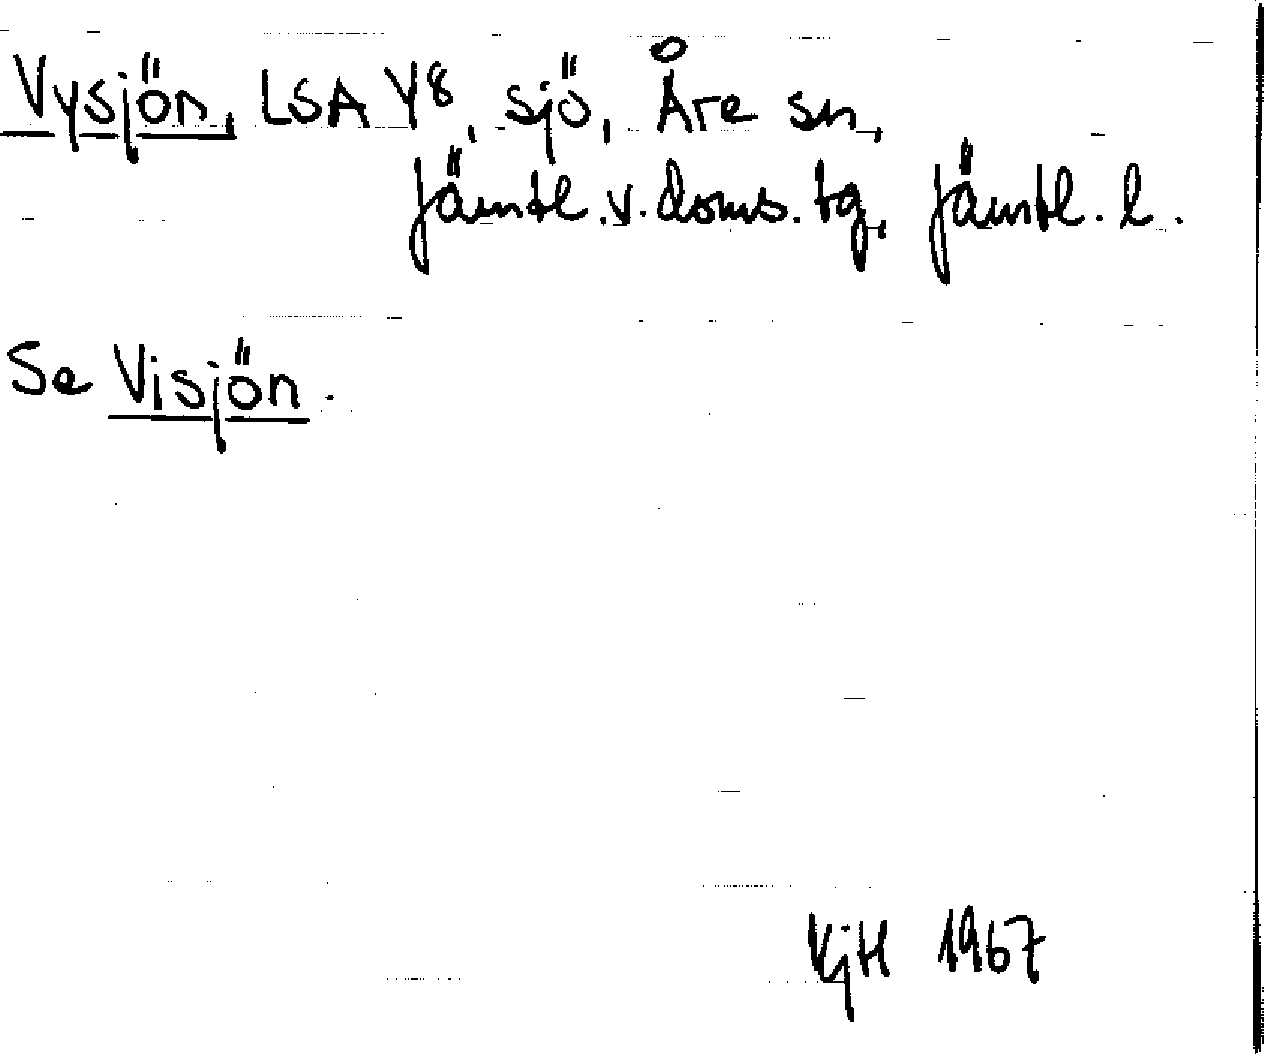 Vysjön, LSA Y8, sjö, Åre sn,
Jämtl. v. doms. tg, Jämtl. l.
Se Visjön.
KjH 1967